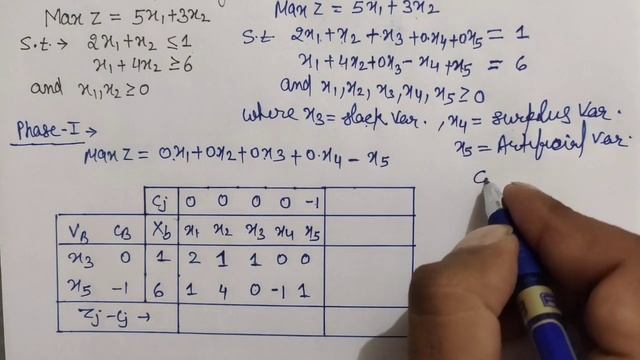 Max Z = 5x₁+3x₂
S.t.→ 2x₁+x₂ ≤ 1
x₁+4x₂ ≥ 6
and x₁,x₂ ≥ 0
Max Z = 5x₁+3x₂
S.t. 2x₁+x₂+x₃+0x₄+0x₅ = 1
x₁+4x₂+0x₃-x₄+x₅ = 6
and x₁,x₂,x₃,x₄,x₅ ≥ 0
where x₃ = slack var., x₄ = surplus var.
x₅ = Artificial var.
Phase-I→
Max Z = 0.x₁+0x₂+0x₃+0.x₄-x₅
Cj 0 0 0 0 -1
V_B C_B X_b x₁ x₂ x₃ x₄ x₅
x₃ 0 1 2 1 1 0 0
x₅ -1 6 1 4 0 -1 1
Zj-Cj →